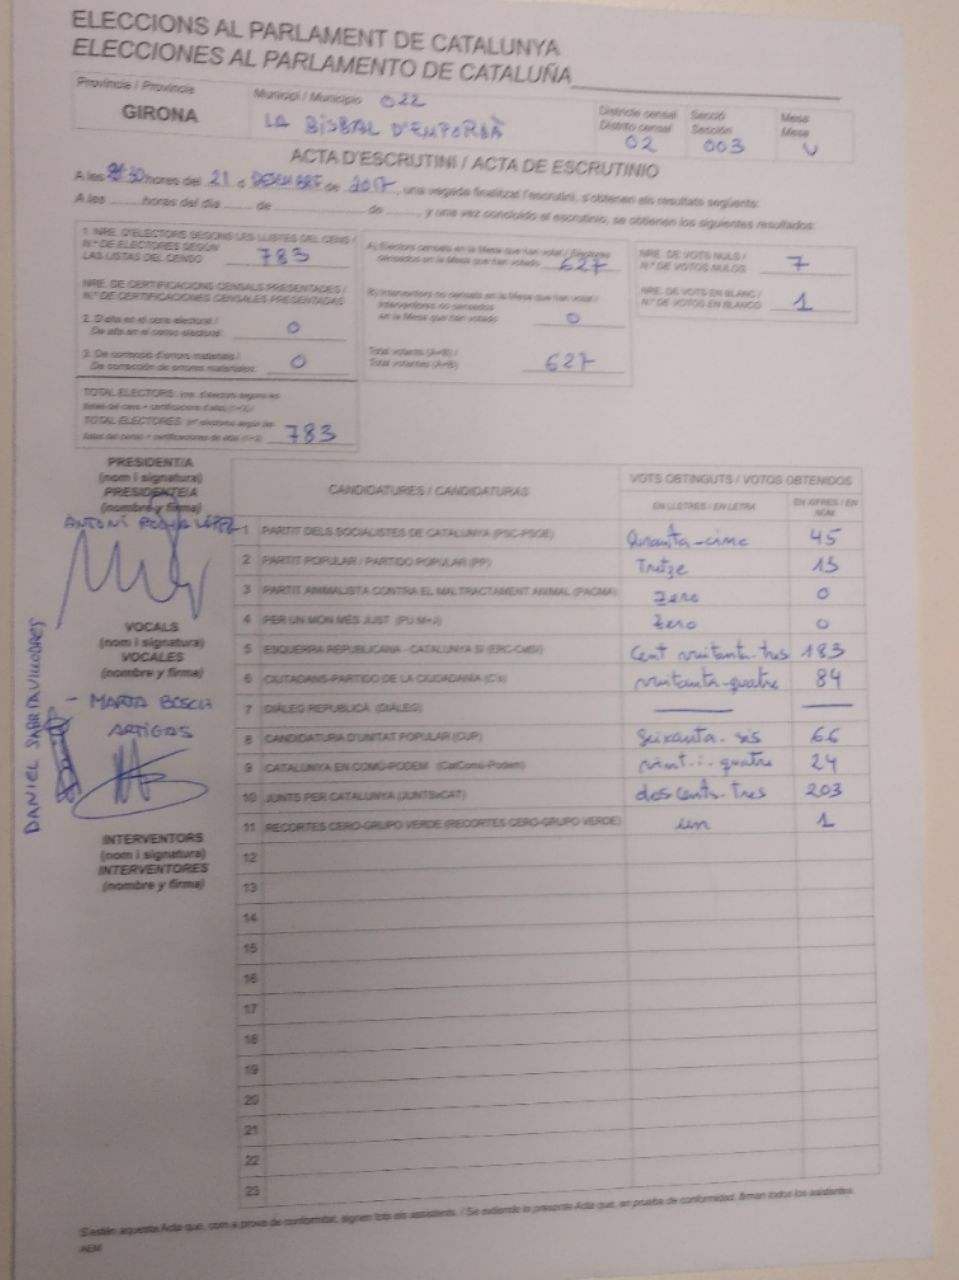 ELECCIONS AL PARLAMENT DE CATALUNYA
ELECCIONES AL PARLAMENTO DE CATALUÑA
Província / Provincia
GIRONA
Municipi / Municipio 022
LA BISBAL D'EMPORDÀ
Districte censal
Distrito censal
02
Secció
Sección
003
Mesa
Mesa
U
ACTA D'ESCRUTINI / ACTA DE ESCRUTINIO
A les hores del 21 d DESEMBRE de 2017, una vegada finalitzat l'escrutini, s'obtenen els resultats següents:
A las ........ horas del día ........ de ................ de ........, y una vez concluido el escrutinio, se obtienen los siguientes resultados:
1. NRE. D'ELECTORS SEGONS LES LLISTES DEL CENS /
N.º DE ELECTORES SEGÚN
LAS LISTAS DEL CENSO 783
NRE. DE CERTIFICACIONS CENSALS PRESENTADES /
N.º DE CERTIFICACIONES CENSALES PRESENTADAS
2. D'alta en el cens electoral /
De alta en el censo electoral: 0
3. De correcció d'errors materials /
De corrección de errores materiales: 0
TOTAL ELECTORS: (nre. d'electors segons les
llistes del cens + certificacions d'altes) (1+2) /
TOTAL ELECTORES: (nº electores según las
listas del censo + certificaciones de altas) (1+2) 783
A) Electors censats en la Mesa que han votat / Electores
censados en la Mesa que han votado 627
B) Interventors no censats en la Mesa que han votat /
Interventores no censados
en la Mesa que han votado 0
Total votants (A+B) /
Total votantes (A+B) 627
NRE. DE VOTS NULS /
N.º DE VOTOS NULOS 7
NRE. DE VOTS EN BLANC /
N.º DE VOTOS EN BLANCO 1
PRESIDENT/A
(nom i signatura)
PRESIDENTE/A
(nombre y firma)
ANTONI ROCHA LÓPEZ
VOCALS
(nom i signatura)
VOCALES
(nombre y firma)
- MARTA BOSCH
ARTIGAS
DANIEL
INTERVENTORS
(nom i signatura)
INTERVENTORES
(nombre y firma)
CANDIDATURES / CANDIDATURAS
VOTS OBTINGUTS / VOTOS OBTENIDOS
EN LLETRES / EN LETRA
EN XIFRES / EN NÚM.
1 PARTIT DELS SOCIALISTES DE CATALUNYA (PSC-PSOE) Quaranta-cinc 45
2 PARTIT POPULAR / PARTIDO POPULAR (PP) Tretze 13
3 PARTIT ANIMALISTA CONTRA EL MALTRACTAMENT ANIMAL (PACMA) Zero 0
4 PER UN MÓN MÉS JUST (PUM+J) Zero 0
5 ESQUERRA REPUBLICANA - CATALUNYA SÍ (ERC-CatSí) Cent vuitanta-tres 183
6 CIUTADANS-PARTIDO DE LA CIUDADANÍA (C's) vuitanta-quatre 84
7 DIÀLEG REPUBLICÀ (DIÀLEG)
8 CANDIDATURA D'UNITAT POPULAR (CUP) Seixanta-sis 66
9 CATALUNYA EN COMÚ-PODEM (CatComú-Podem) vint-i-quatre 24
10 JUNTS PER CATALUNYA (JUNTSxCAT) dos cents-tres 203
11 RECORTES CERO-GRUPO VERDE (RECORTES CERO-GRUPO VERDE) un 1
12
13
14
15
16
17
18
19
20
21
22
23
S'estén aquesta Acta que, com a prova de conformitat, signen tots els assistents. / Se extiende la presente Acta que, en prueba de conformidad, firman todos los asistentes.